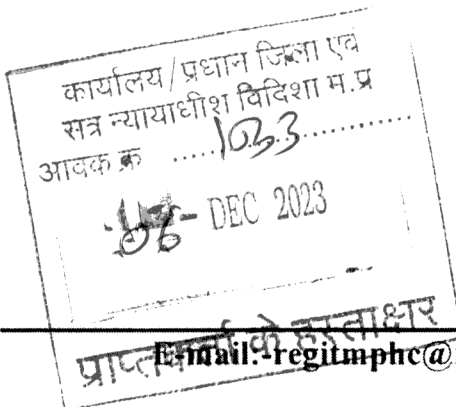 कार्यालय/प्रधान जिला एवं
सत्र न्यायाधीश विदिशा म.प्र
आवक क्र ......1033..............
06- DEC 2023
प्राप्तकर्ता के हस्ताक्षर
E-mail:-regitmphc@